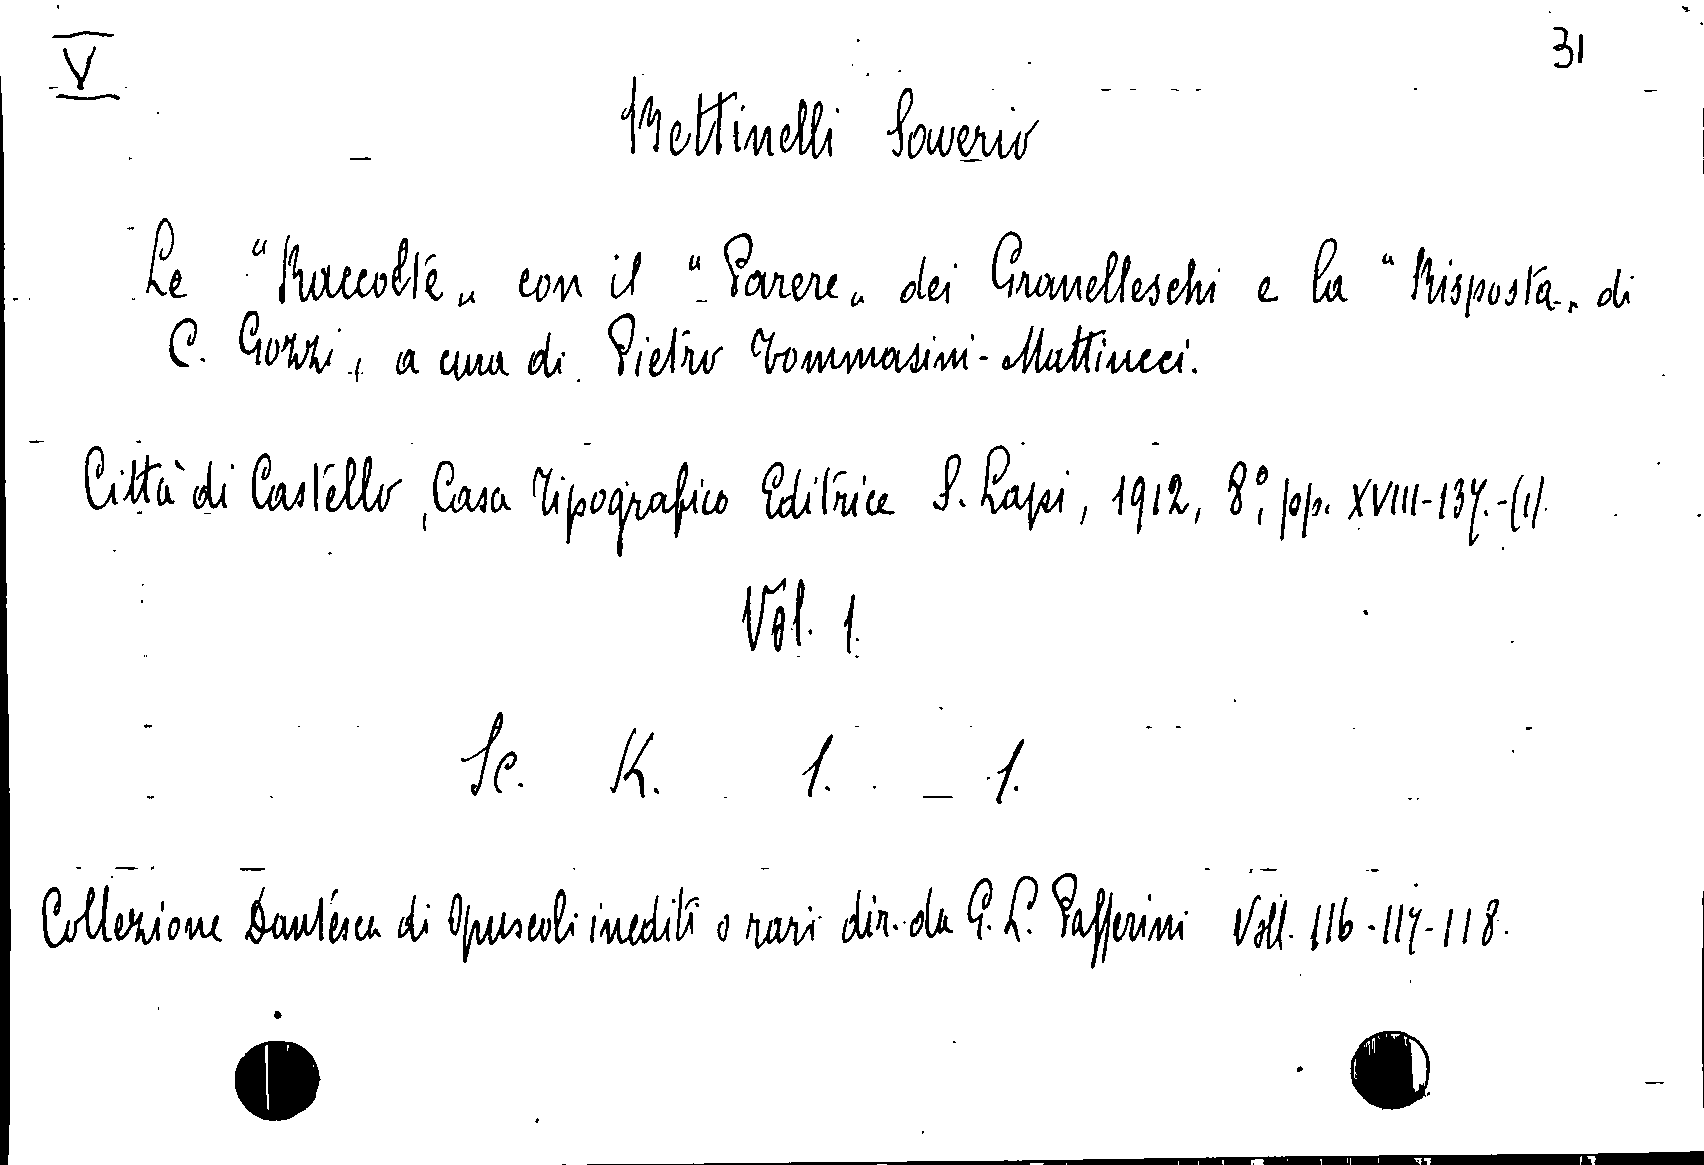 V 31
Bettinelli Saverio
Le "Raccolte„ con il "Parere„ dei Granelleschi e la "Risposta„ di
C. Gozzi, a cura di Pietro Tommasini-Mattiucci.
Città di Castello, Casa Tipografico Editrice S. Lapi, 1912, 8°, pp. XVIII-137.-(1).
Vol. 1.
Sc. K. 1. 1.
Collezione Dantesca di Opuscoli inediti o rari dir. da G. L. Passerini Voll. 116-117-118.